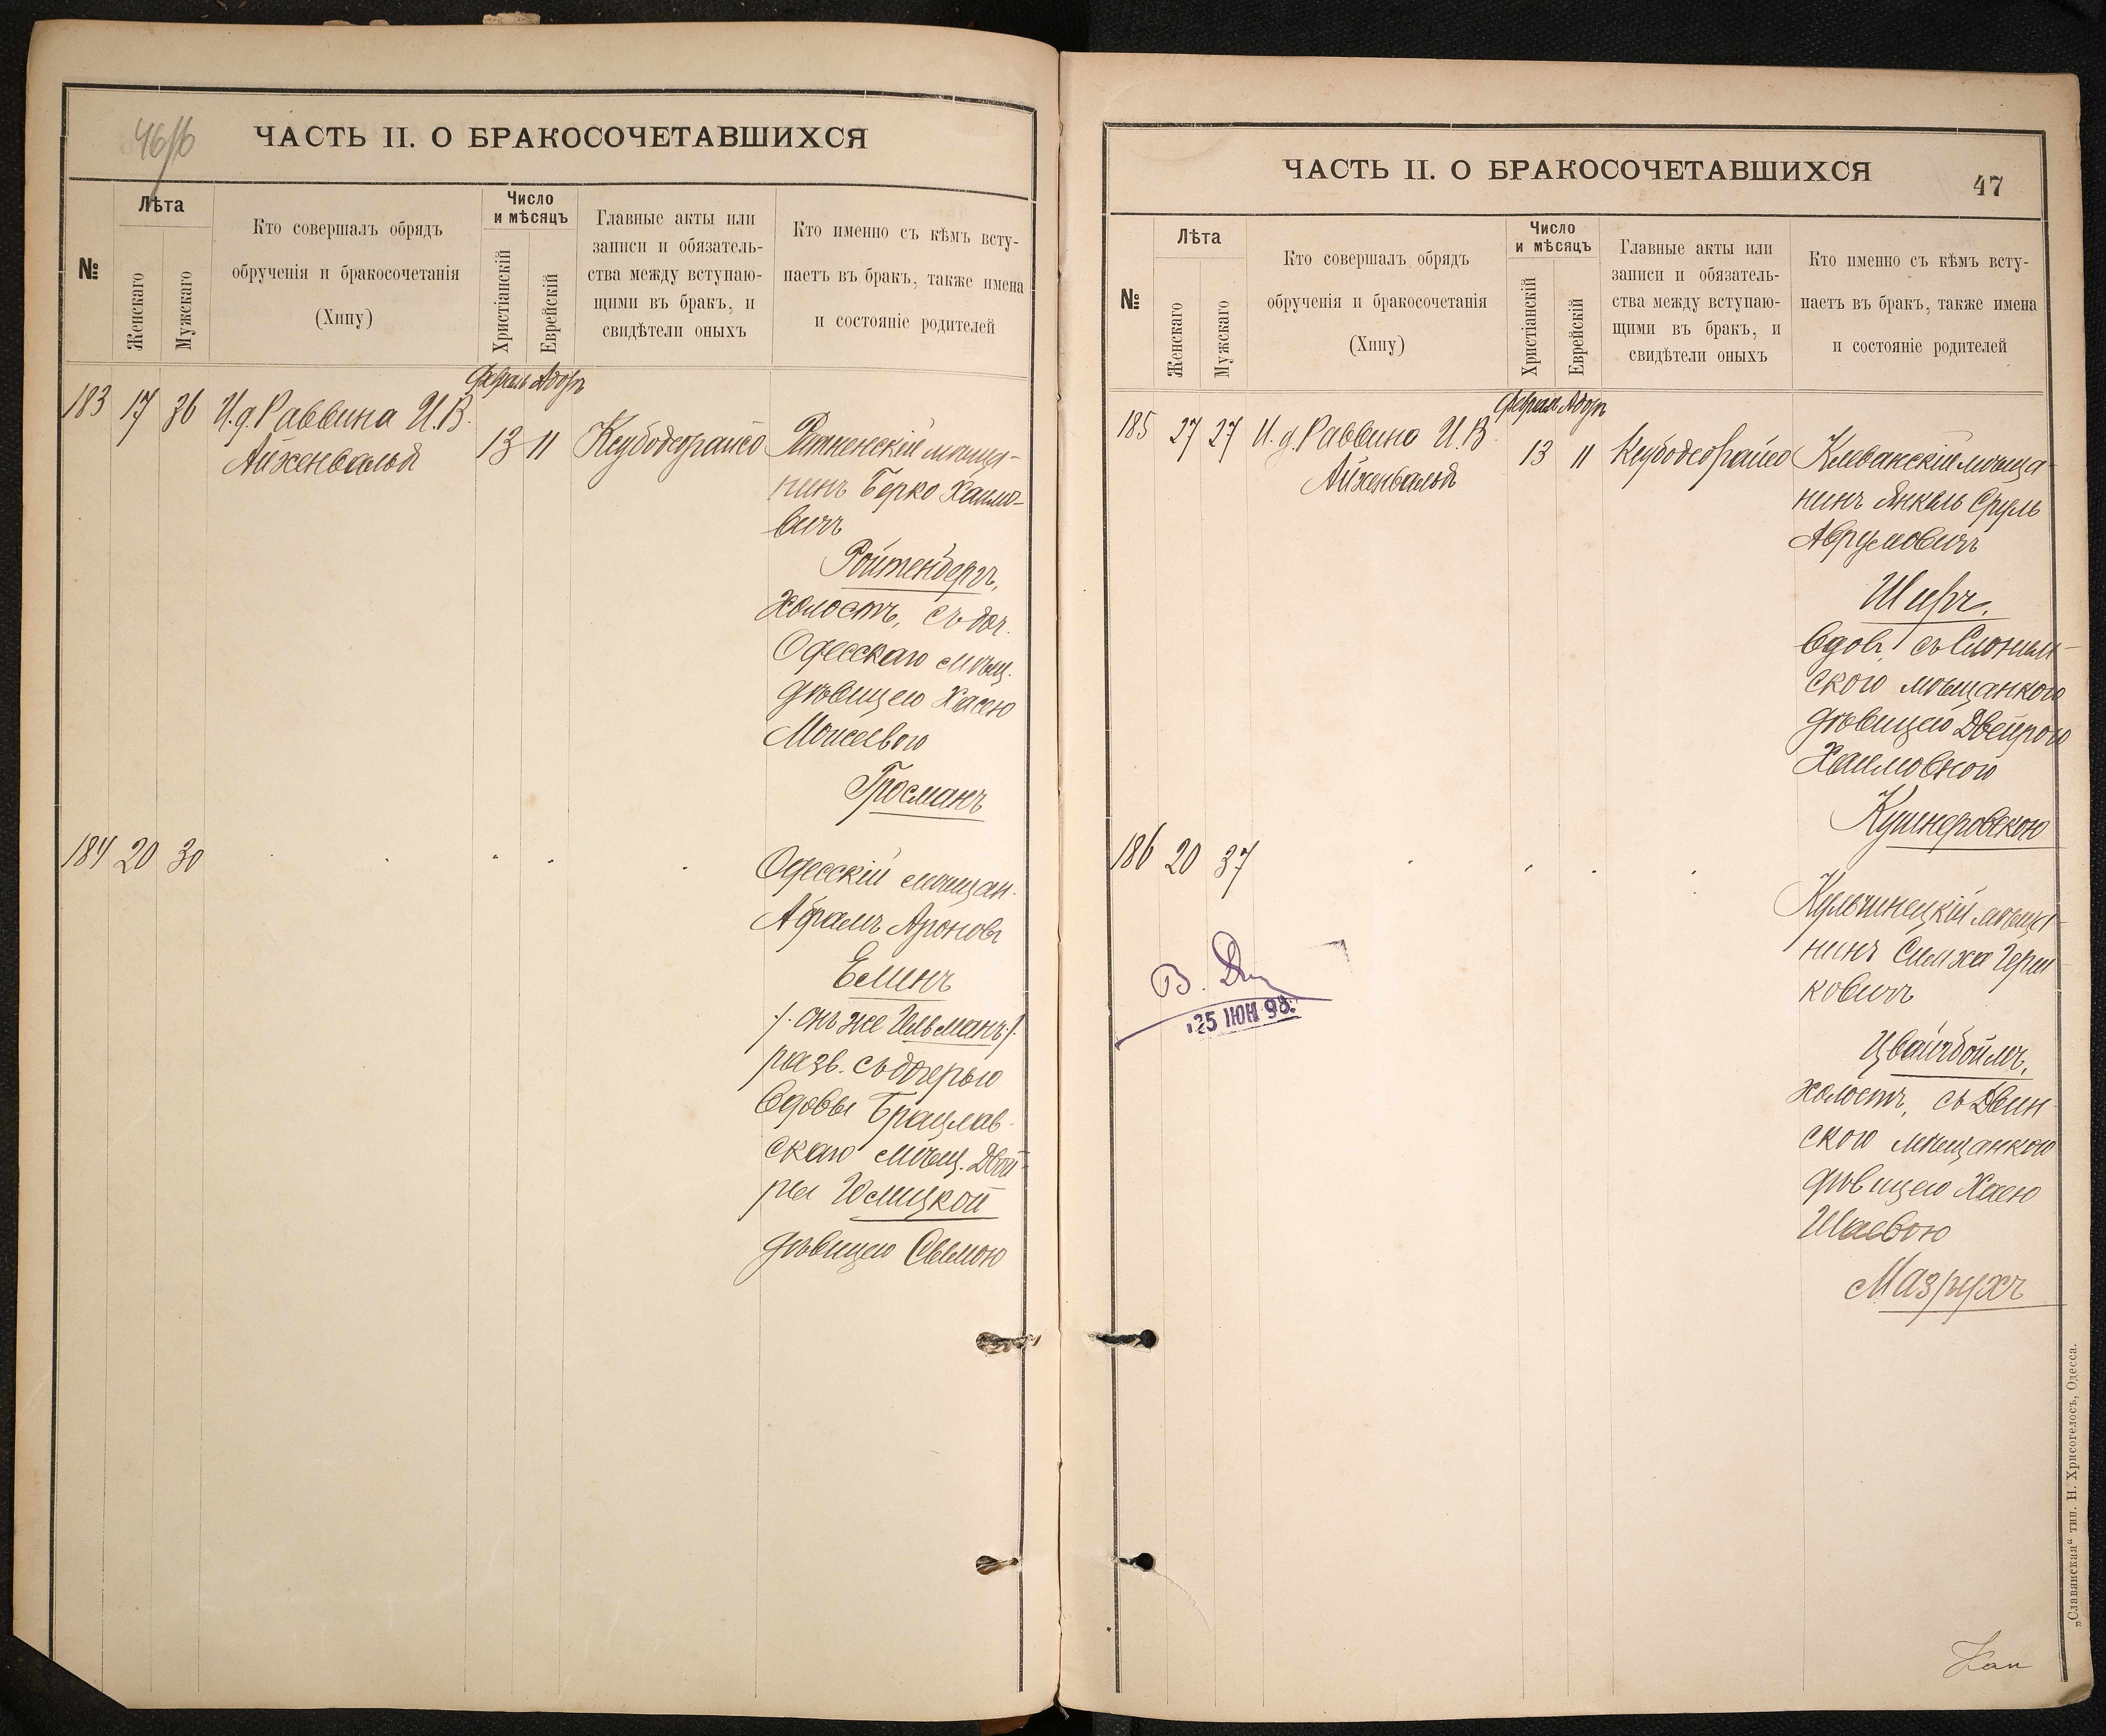 46
ЧАСТЬ II. О БРАКОСОЧЕТАВШИХСЯ
№
Лѣта
Женскаго
Мужскаго
Кто совершалъ обрядъ
обрученія и бракосочетанія
(Хипу)
Число
и мѣсяцъ
Христіанскій
Еврейскій
Главные акты или
записи и обязатель-
ства между вступаю-
щими въ бракъ, и
свидѣтели оныхъ
Кто именно съ кѣмъ всту-
паетъ въ бракъ, также имена
и состояніе родителей
Февраль Адоръ
183 17 36 И. д. Раввина И. В.
Айхенвальд
13 11 Ксубодеорайсо
Ратненскій мѣща-
нинъ Берко Хаимо-
вичъ
Ройтенбергъ,
холостъ, съ доч.
Одесскаго мѣщ.
дѣвицею Хасею
Моисеевою
Гросманъ
184 20 30
Одесскій мѣщан.
Абрамъ Ароновъ
Елинъ
/. онъ же Ильманъ ./
разв. съ дочерью
вдовы Брацлав-
скаго мѣщ. Двой-
ры Юмицкой
дѣвицею Сымою
ЧАСТЬ II. О БРАКОСОЧЕТАВШИХСЯ
47
№
Лѣта
Женскаго
Мужскаго
Кто совершалъ обрядъ
обрученія и бракосочетанія
(Хипу)
Число
и мѣсяцъ
Христіанскій
Еврейскій
Главные акты или
записи и обязатель-
ства между вступаю-
щими въ бракъ, и
свидѣтели оныхъ
Кто именно съ кѣмъ всту-
паетъ въ бракъ, также имена
и состояніе родителей
Февраль Адоръ
185 27 27 И. д. Раввина И. В.
Айхенвальд
13 11 Ксубодеорайсо
Клеванскій мѣща-
нинъ Янкель Сруль
Аврумовичъ
Шифъ,
вдов., съ Слоним-
скою мѣщанкою
дѣвицею Двейрою
Хаимовною
Кушнеровскою
186 20 37
Кульчинецкій мѣща-
нинъ Симха Герш-
ковичъ
Цвайгбоймъ,
холостъ, съ Двин-
скою мѣщанкою
дѣвицею Хаею
Шаевою
Мазрухъ
В.
25 ИЮН 98.
„Славянская“ тип. Н. Хрисогелосъ, Одесса.